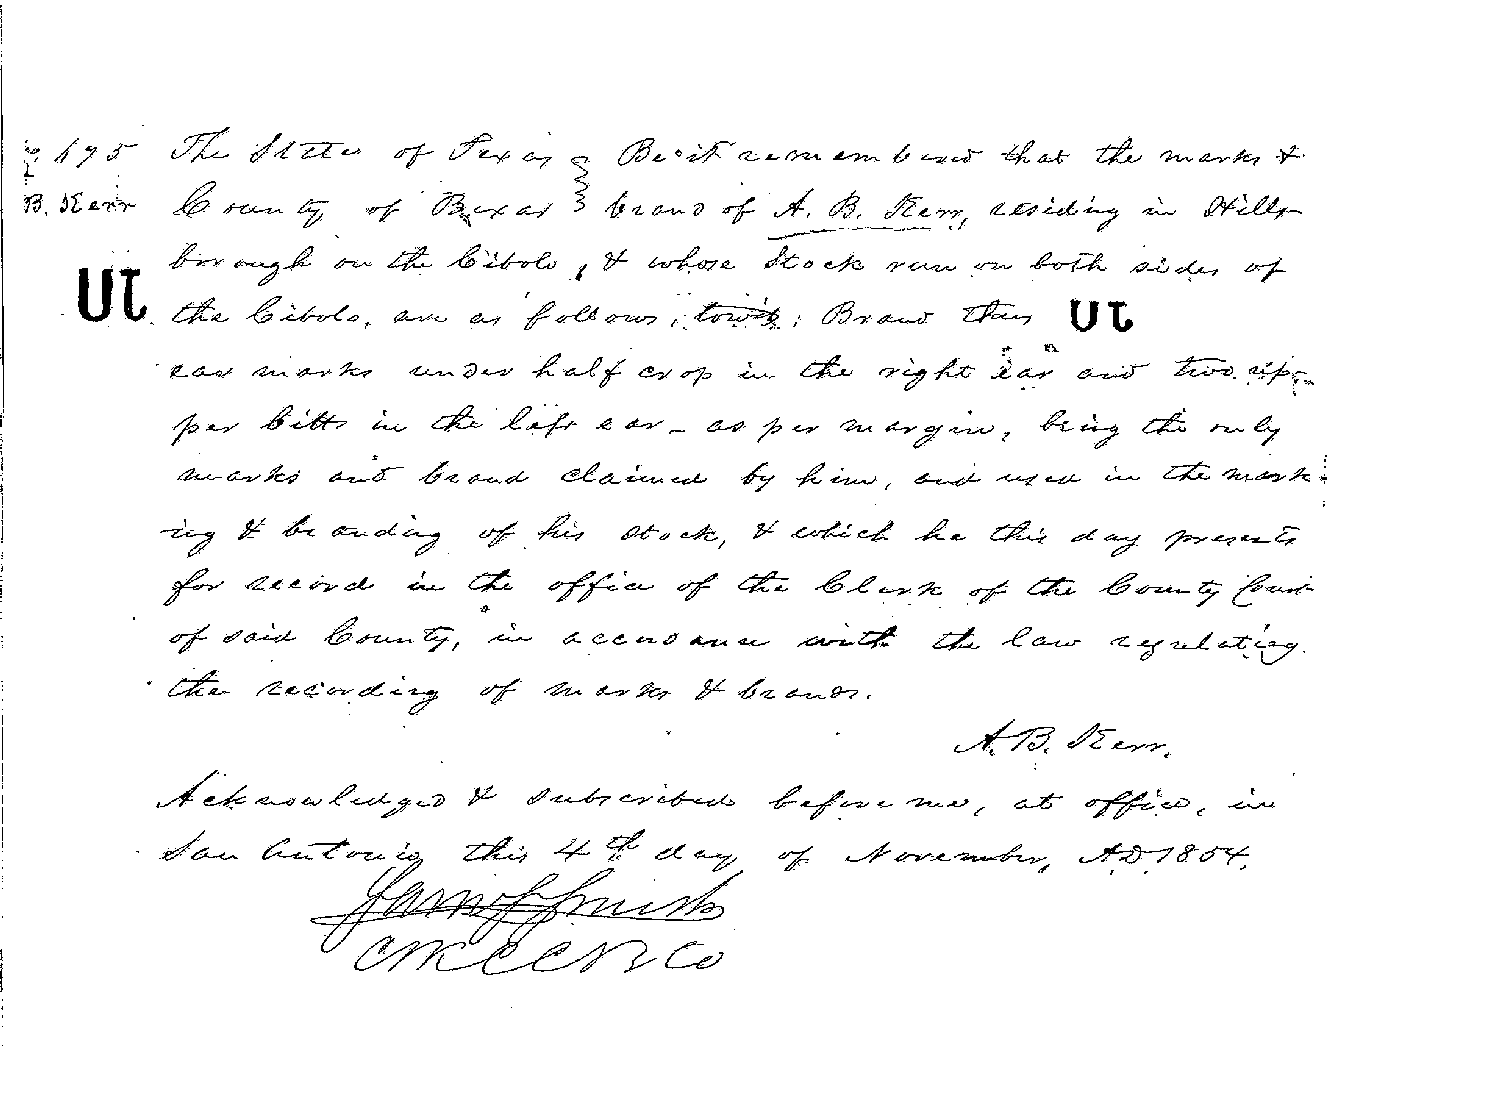 695 The State of Texas } Be it remembered that the marks &
B. Kerr County of Bexar } brand of A. B. Kerr, residing in Hills-
borough on the Cibolo, & whose Stock run on both sides of
UJ the Cibolo, are as follows, towit: Brand thus UJ
ear marks under half crop in the right ear and two up-
per bitts in the left ear - as per margin, being the only
marks and brand claimed by him, and used in the mark-
ing & branding of his stock, & which he this day presents
for record in the office of the Clerk of the County Court
of said County, in accordance with the law regulating
the recording of marks & brands.
A. B. Kerr.
Acknowledged & subscribed before me, at office, in
San Antonio this 4th day of November, AD 1854.
CLKCCBCo